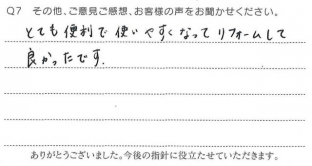 Q7 その他、ご意見ご感想、お客様の声をお聞かせください。
とても便利で使いやすくなってリフォームして
良かったです.
ありがとうございました。今後の指針に役立たせていただきます。